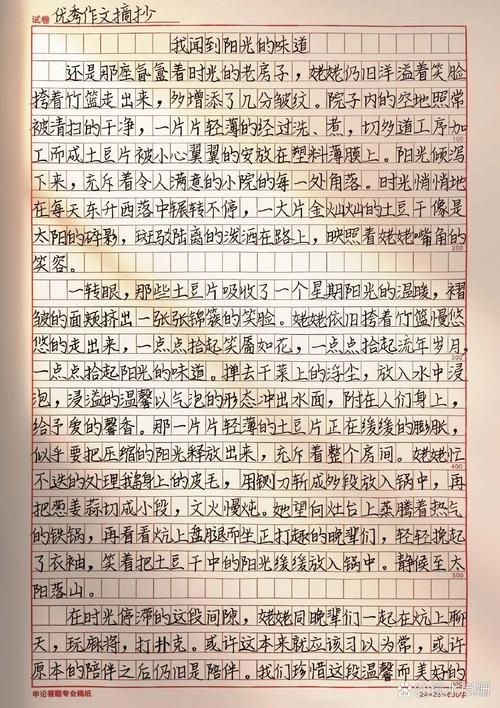 试卷 优秀作文摘抄
我闻到阳光的味道
还是那座氤氲着时光的老房子，姥姥仍旧洋溢着笑脸
挎着竹篮走出来，多增添了几分皱纹。院子内的空地照常
被清扫的干净，一片片轻薄的经过洗、煮，切多道工序加
100
工而成土豆片被小心翼翼的安放在塑料薄膜上。阳光倾泻
下来，充斥着令人满意的小院的每一处角落。时光悄悄地
在每天东升西落中辗转不停，一大片金灿灿的土豆干像是
太阳的碎影，斑驳陆离的泼洒在路上，映照着姥姥嘴角的
200
笑容。
一转眼，那些土豆片吸收了一个星期阳光的温暖，褶
皱的面颊挤出一张张锦簇的笑脸。姥姥依旧挎着竹篮慢悠
悠的走出来，一点点拾起笑靥如花，一点点拾起流年岁月，
300
一点点拾起阳光的味道。掸去干菜上的浮尘，放入水中浸
泡，浸溢的温馨以气泡的形态冲出水面，附在人们身上，
给予爱的馨香。那一片片轻薄的土豆片正在缓缓的膨胀，
似乎要把压缩的阳光释放出来，充斥着整个房间。姥姥忙
400
不迭的处理我身上的皮毛，用铡刀斩成多段放入锅中，再
把葱姜蒜切成小段，文火慢炖。她望向灶台上蒸腾着热气
的铁锅，再看看炕上盘腿而坐正打趣的晚辈们，轻轻挽起
了衣袖，笑着把土豆干中的阳光缓缓放入锅中。静候至太
500
阳落山。
在时光停滞的这段间隙，姥姥同晚辈们一起在炕上聊
天，玩麻将，打扑克。或许这本来就应该习以为常，或许
原本的陪伴之后仍旧是陪伴。我们珍惜这段温馨而美好的
申论答题专业稿纸